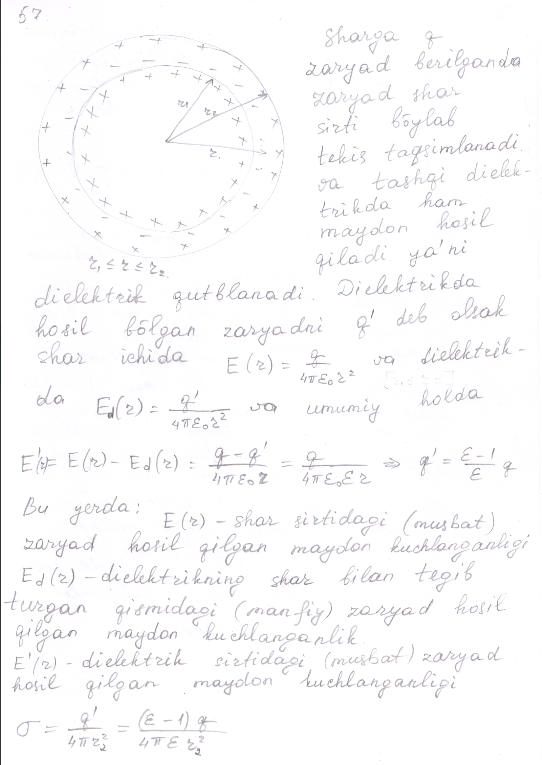 57
Sharga q
zaryad berilganda
zaryad shar
sirti bo̅ylab
tekis taqsimlanadi.
va tashqi dielek-
trikda ham
maydon hosil
qiladi ya'ni
r₁ r₂
r
r₁ ≤ r ≤ r₂
dielektrik qutblanadi. Dielektrikda
hosil bo̅lgan zaryadni q' deb olsak
shar ichida E(r) = q/4πε₀r² va dielektrik-
da E_d(r) = q'/4πε₀r² va umumiy holda
E'(r) = E(r) - E_d(r) = q - q'/4πε₀r = q/4πε₀εr ⇒ q' = ε-1/ε q
Bu yerda: E(r) - shar sirtidagi (musbat)
zaryad hosil qilgan maydon kuchlanganligi
E_d(r) - dielektrikning shar bilan tegib
turgan qismidagi (manfiy) zaryad hosil
qilgan maydon kuchlanganlik.
E'(r) - dielektrik sirtidagi (musbat) zaryad
hosil qilgan maydon kuchlanganligi
σ = q'/4πr₂² = (ε-1)q/4πεr₂²